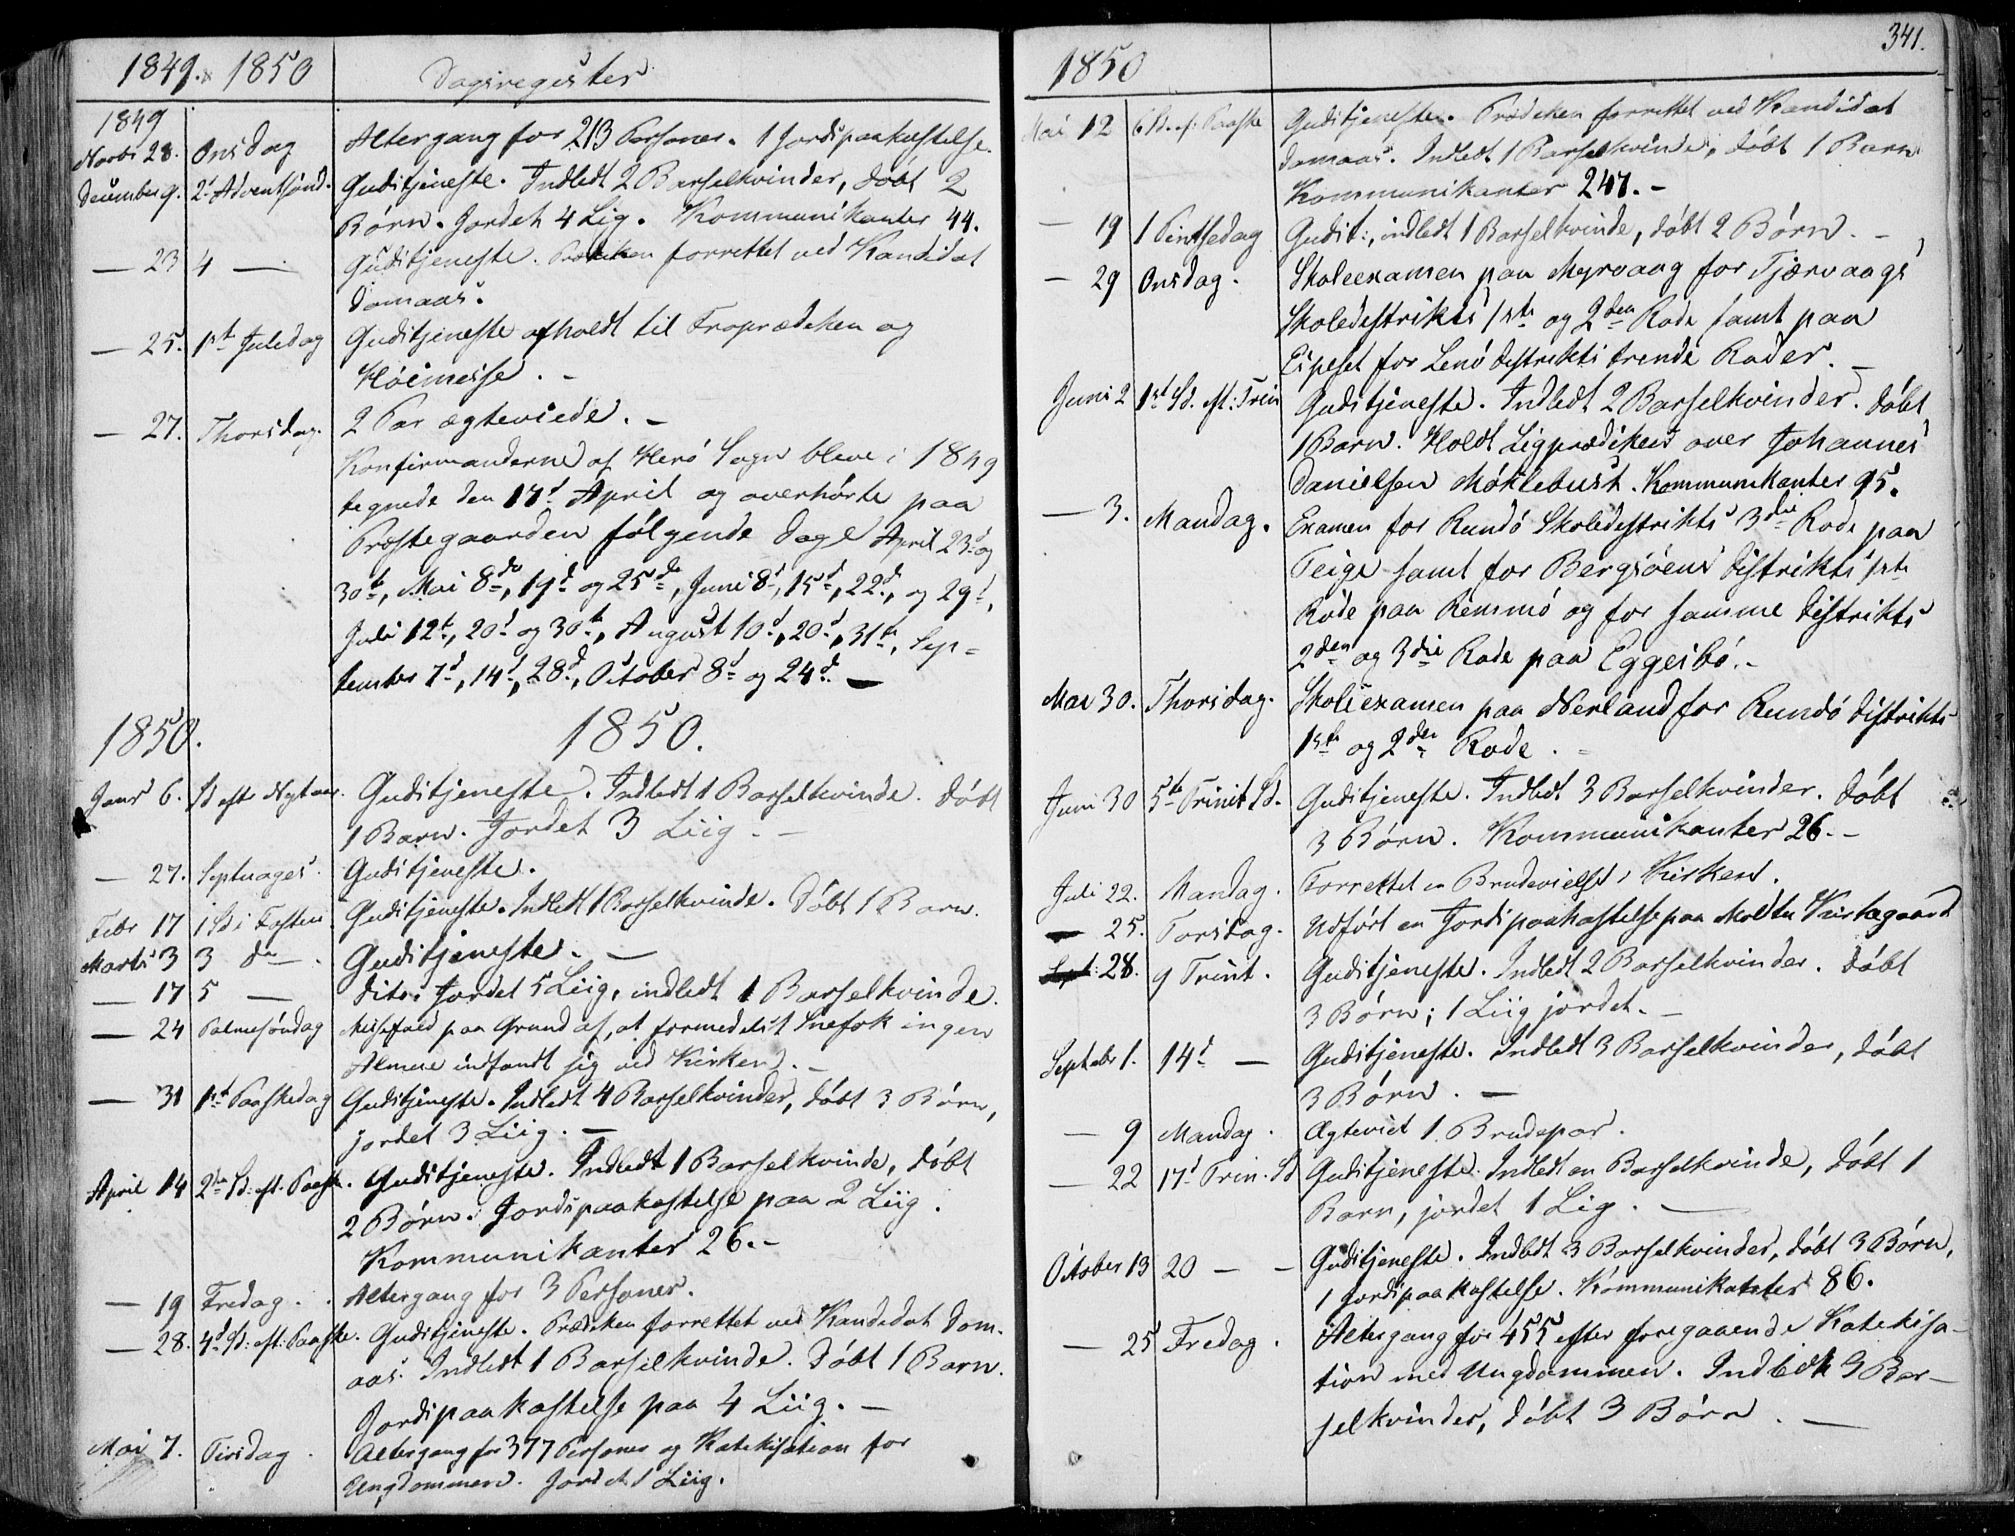 1849. 1850 Dagsregister
1849
Novbr 28. Onsdag Altergang for 213 Personer. 1 Jordspaakastelse.
December 9. 2d Adventsønd. Gudstjeneste. Indledt 2 Barselkvinder, døbt 2
Børn. Jordet 4 Lig. Kommunikanter 44.
— 23 4 — Gudstjeneste. Præeken forrettet ved Kandidat
Domaas.
— 25. 1ste Juledag Gudstjeneste afholdt til Froprædeken og
Høimesse. –
— 27. Thorsdag. 2 Par ægteviede. –
Konfirmanderne af Herø Sogn bleve i 1849
tegnede den 17d April og overhørte paa
Præstegaarden følgende Dage April 23d og
30te, Mai 8de, 19d og 25de, Juni 8d, 15d, 22d, og 29d,
Juli 12te, 20d og 30te, August 10d, 20d, 31te, Sep=
tember 7d, 14d, 28d, October 8d og 24d. —
1850. 1850.
Janr 6. Sd eft Nytaar. Gudstjeneste. Indledt 1 Barselkvinde. Døbt
1 Barn. Jordet 3 Liig. –
— 27. Septuages. Gudstjeneste.
Febr 17 1 Sd i Fasten Gudstjeneste. Indledt 1 Barselkvinde. Døbt 1 Barn.
Marts 3 3 do —. Gudstjeneste. —
— 17 5 — dito: Jordet 5 Liig, indledt 1 Barselkvinde.
— 24 Palmesøndag Messefald paa Grund af, at formedelst Snefok ingen
Almue indfandt sig ved Kirken. –
— 31 1st Paaskedag Gudstjeneste. Indledt 4 Barselkvinder, døbt 3 Børn,
jordet 3 Liig. —
April 14 2den Sd: eft. Paaske. Gudstjeneste. Indledt 1 Barselkvinde, døbt
2 Børn. Jordspaakastelse paa 2 Liig.
Kommunikanter 26. –
— 19 Fredag. Altergang for 3 Personer.
— 28. 4d Sd: eft: Paaske. Gudstjeneste. Præeken forrettet ved Kandidat Dom-
aas. Indledt 1 Barselkvinde. Døbt 1 Barn.
Jordspaakastelse paa 4 Liig. —
Mai 7. Tirsdag. Altergang for 377 Personer og Katekisation for
Ungdommen. Jordet 1 Liig.
1850 341.
Mai 12 6 Sd. e. Paaske Gudstjeneste. Prædeken forrettet ved Kandidat
Domaas. Indledt 1 Barselkvinde, døbt 1 Barn
Kommunikanter 247. –
— 19 1 Pintsedag Gudst:, indledt 1 Barselkvinde, døbt 2 Børn. –
— 29 Onsdag. Skoleexamen paa Myrvaag for Tjørvaags
Skoledistrikts 1ste og 2den Rode samt paa
Espeset for Lenø Distrikts trende Roder. —
Juni 2 1st Sd. eft: Trin Gudstjeneste. Indledt 2 Barselkvinder. døbt
1 Barn. Holdt Ligprædiken over Johannes
Danielsen Møklebust. Kommunikanter 95.
— 3. Mandag. Examen for Rundø Skoledistrikts 3die Rode paa
Teige samt for Bergsøens Distrikts 1ste
Rode paa Remmø og for samme Distrikts
2den og 3die Rode paa Eggesbø. –
Mai 30. Thorsdag. Skoleexamen paa Nerland for Rundø Distrikts
1ste og 2den Rode. –
Juni 30 5te Trinit Sd. Gudstjeneste. Indledt 3 Barselkvinder. døbt
3 Børn. Kommunikanter 26. –
Juli 22. Mandag. Forrettet en Brudevielse i Kirken.
— 25. Torsdag. Udført en Jordspaakastelse paa Moltu Kirkegaard
Sept: 28. 9 Trinit. Gudstjeneste. Indledt 2 Barselkvinder. døbt
3 Børn; 1 Liig jordet. –
Septebr 1. 14d — Gudstjeneste. Indledt 3 Barselkvinder, døbt
3 Børn. –
— 9 Mandag. Ægteviet 1 Brudepar.
— 22 17d Trin. Sd Gudstjeneste. Indledt en Barselkvinde, døbt 1
Barn, jordet 1 Lig. —
October 13 20 — – Gudstjeneste. Indledt 3 Barselkvinder, døbt 3 Børn,
1 Jordspaakastelse. Kommunikanter 86.
— 25 Fredag. Altergang for 455 efter foregaaende Katekisa-
tion med Ungdommen. Indledt 3 Bar-
selkvinder, døbt 3 Børn. —